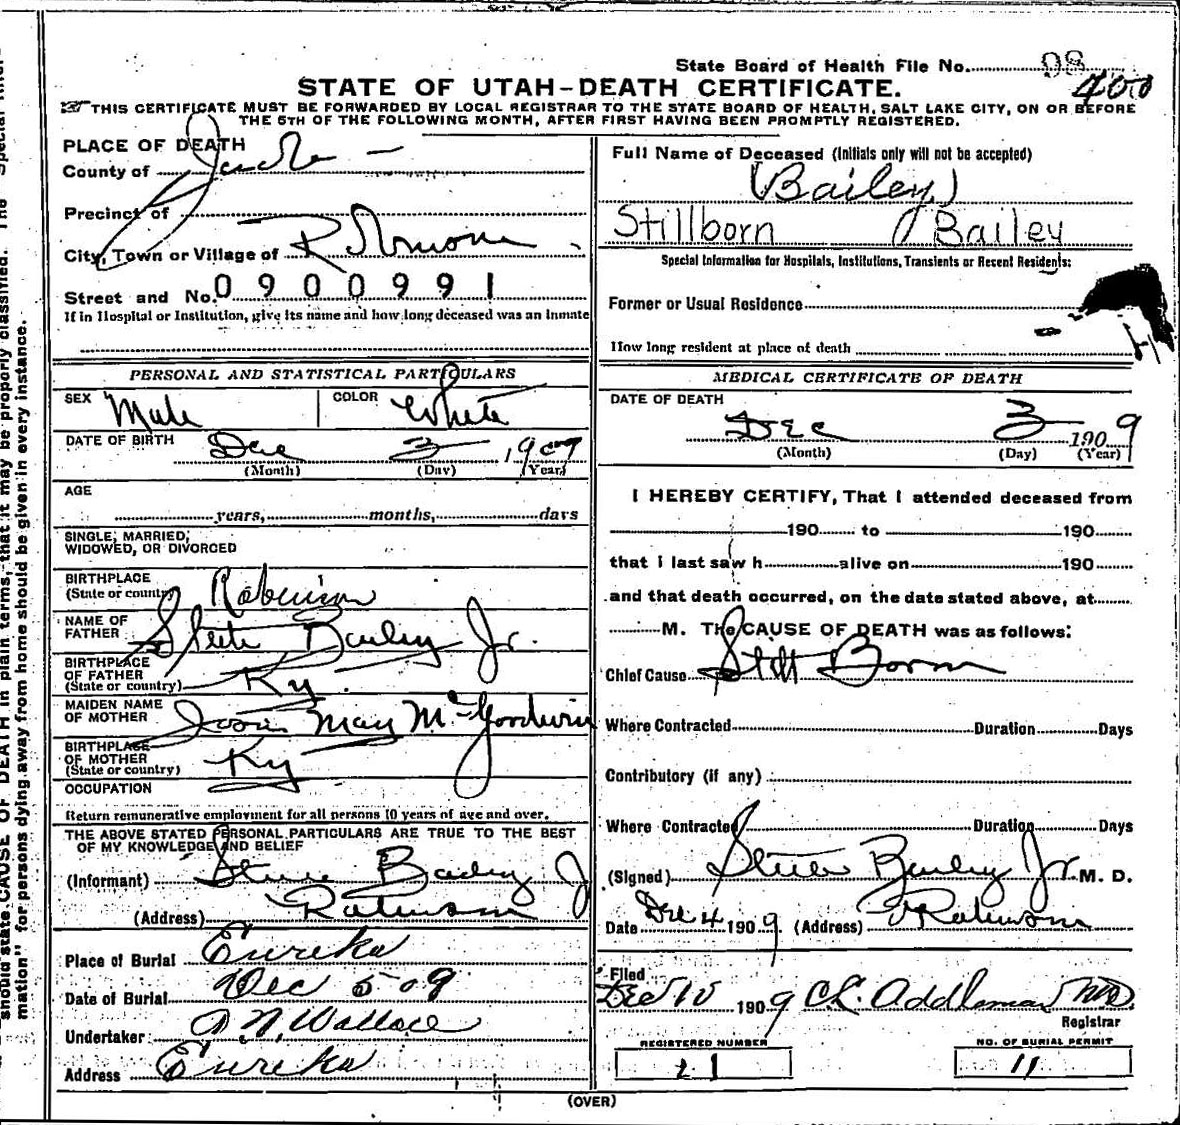 State Board of Health File No. 98
400
STATE OF UTAH-DEATH CERTIFICATE.
THIS CERTIFICATE MUST BE FORWARDED BY LOCAL REGISTRAR TO THE STATE BOARD OF HEALTH, SALT LAKE CITY, ON OR BEFORE
THE 5TH OF THE FOLLOWING MONTH, AFTER FIRST HAVING BEEN PROMPTLY REGISTERED.
PLACE OF DEATH
County of
Precinct of
City, Town or Village of
Street and No. 0900991
If in Hospital or Institution, give its name and how long deceased was an inmate
PERSONAL AND STATISTICAL PARTICULARS
SEX Male COLOR White
DATE OF BIRTH Dec 3 1909
(Month) (Day) (Year)
AGE
years, months, days
SINGLE, MARRIED,
WIDOWED, OR DIVORCED
BIRTHPLACE
(State or country) Robinson
NAME OF
FATHER Bailey Jr.
BIRTHPLACE
OF FATHER
(State or country) Ky.
MAIDEN NAME
OF MOTHER May McGoodwin
BIRTHPLACE
OF MOTHER
(State or country) Ky
OCCUPATION
Return remunerative employment for all persons 10 years of age and over.
THE ABOVE STATED PERSONAL PARTICULARS ARE TRUE TO THE BEST
OF MY KNOWLEDGE AND BELIEF
(Informant) Bailey J
(Address) Robinson
Place of Burial Eureka
Date of Burial Dec 5 09
Undertaker A. N. Wallace
Address Eureka
Full Name of Deceased (Initials only will not be accepted)
(Bailey)
Stillborn Bailey
Special Information for Hospitals, Institutions, Transients or Recent Residents:
Former or Usual Residence
How long resident at place of death
MEDICAL CERTIFICATE OF DEATH
DATE OF DEATH
Dec 3 1909
(Month) (Day) (Year)
I HEREBY CERTIFY, That I attended deceased from
190 to 190
that I last saw h alive on 190
and that death occurred, on the date stated above, at
M. The CAUSE OF DEATH was as follows:
Chief Cause Still Born
Where Contracted Duration Days
Contributory (if any)
Where Contracted Duration Days
(Signed) Bailey Jr. M. D.
Date Dec 4 1909. (Address) Robinson
Filed
Dec 10 1909 C. E. Addleman MD
Registrar
REGISTERED NUMBER NO. OF BURIAL PERMIT
11
(OVER)
should state CAUSE OF DEATH in plain terms, that it may be properly classified. The "Special Infor-
mation" for persons dying away from home should be given in every instance.